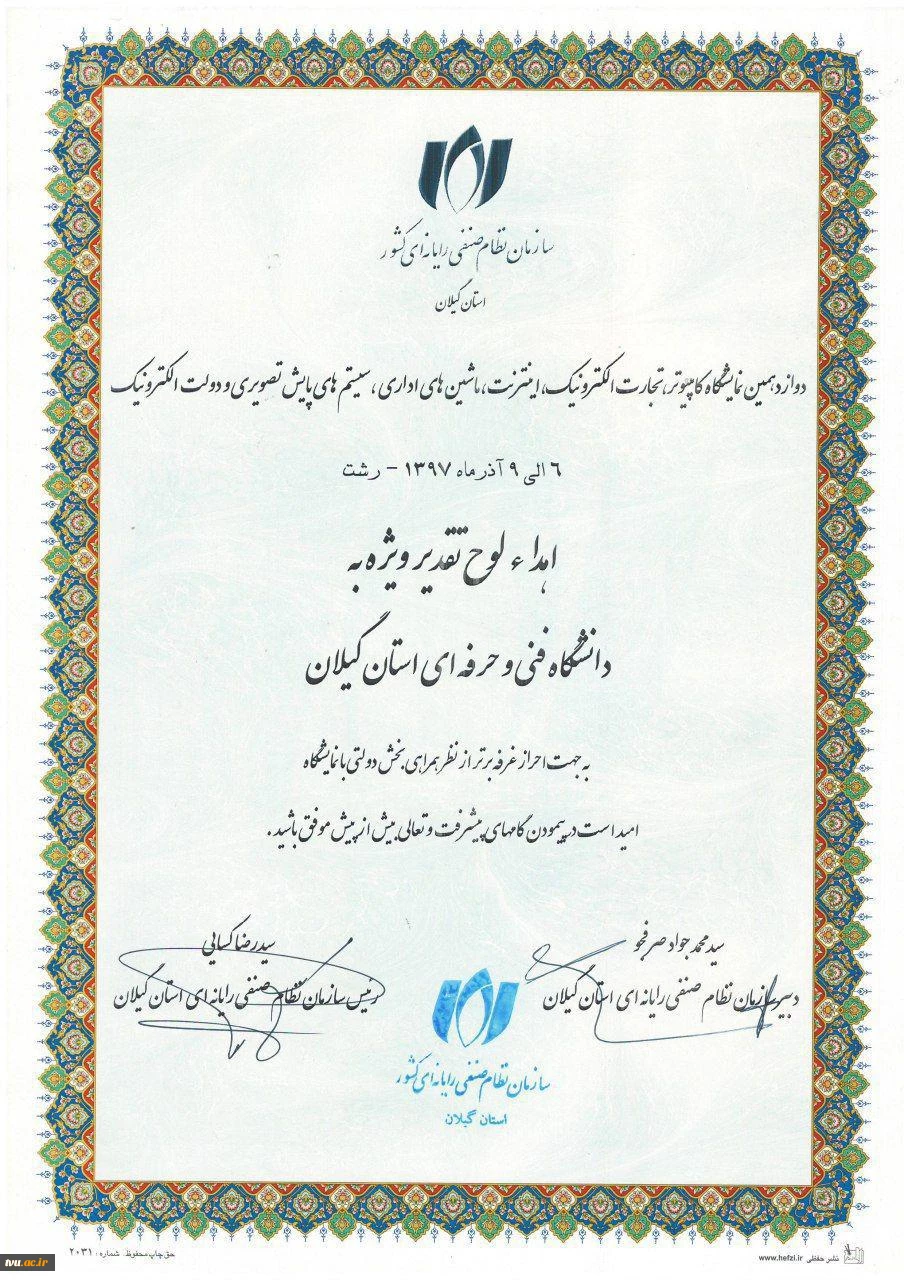 سازمان نظام صنفی رایانه‌ای کشور
استان گیلان
دوازدهمین نمایشگاه کامپیوتر، تجارت الکترونیک، اینترنت، ماشین های اداری، سیستم های پایش تصویری و دولت الکترونیک
۶ الی ۹ آذر ماه ۱۳۹۷ - رشت
اهداء لوح تقدیر ویژه به
دانشگاه فنی و حرفه ای استان گیلان
به جهت احراز غرفه برتر از نظر همراهی بخش دولتی با نمایشگاه
امید است در پیمودن گامهای پیشرفت و تعالی بیش از پیش موفق باشید.
سید محمد جواد صرفجو
دبیر سازمان نظام صنفی رایانه ای استان گیلان
سید رضا کسایی
رئیس سازمان نظام صنفی رایانه ای استان گیلان
سازمان نظام صنفی رایانه‌ای کشور
استان گیلان
نشر حفظی www.hefzi.ir
حق چاپ محفوظ. شماره: ۲۰۳۱
tvu.ac.ir